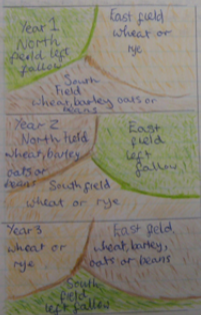 Year 1
North
field left
fallow
East field
wheat or
rye
South
field
wheat, barley oats or
beans
Year 2
North field
wheat, barley
oats or
beans
East
field
left
fallow!
South field
wheat or rye
Year 3
wheat or
rye
East field,
wheat, barley,
oats or beans
South
field
left fallow